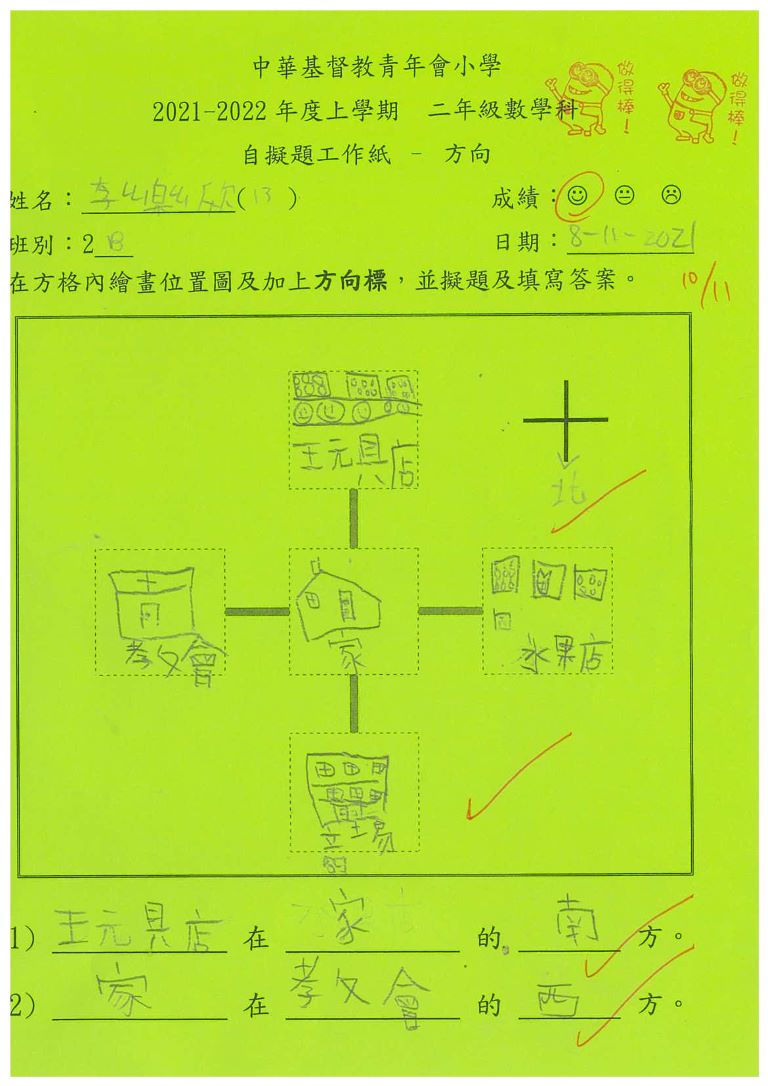 中華基督教青年會小學
做得棒！
做得棒！
2021-2022 年度上學期　二年級數學科
自擬題工作紙 – 方向
姓名：李樂欣(13)
成績：
班別：2B
日期：8-11-2021
在方格內繪畫位置圖及加上方向標，並擬題及填寫答案。
10/11
王元具店
北
教文會
家
水果店
1) 王元具店 在 家 的 南 方。
2) 家 在 孝文會 的 西 方。